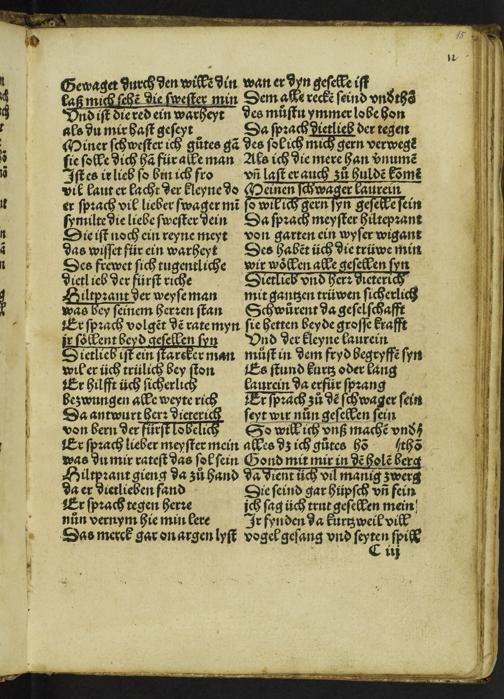 15
12
Gewaget durch den willē din
laß mich sehē die swester min
Vnd ist die red ein warheyt
als du mir hast geseyt
Miner schwester ich gůtes gā
sie solle dich hā für alle man
Ist es ir lieb so bin ich fro
vil laut er lachr der kleyne do
er sprach vil lieber swager mī
symilte die liebe swester dein
Sie ist noch ein reyne meyt
das wisset für ein warheyt
Des frewet sich tugentliche
dietlieb der fürst riche
Hiltprant der weyse man
was bey seinem herren stan
Er sprach volgēt dē rate myn
ir söllent beyd gesellen syn
Dietlieb ist ein starcker man
wil er üch trülich bey ston
Er hilfft üch sicherlich
bezwungen alle weyte rich
Da antwurt herr dieterich
von bern der fürst lobelich
Er sprach lieber meyster mein
was du mir ratest das sol sein
Hiltprant gieng da zů hand
da er dietlieben fand
Er sprach tegen herre
nůn vernym hie min lere
Das merck gar on argen lyst
wan er dyn geselle ist
Dem alle reckē seind vnd'thō
des můstu ymmer lobe hon
Da sprach dietlieb der tegen
des sol ich mich gern verwegē
Als ich die mere han vnumē
vñ last er auch zů huldē komē
Meinen schwager laurein
so wil ich gern syn geselle sein
Da sprach meyster hilteprant
von garten ein wyser wigant
Des habēt üch die trüwe min
wir wöllen alle gesellen syn
Dietlieb vnd herr dieterich
mit gantzen trüwen sicherlich
Schwůrent da geselschafft
sie hetten beyde grosse krafft
Vnd der kleyne laurein
můst in dem fryd begryffē syn
Es stund kurtz oder lang
laurein da erfür sprang
Er sprach zů dē schwager sein
seyt wir nůn gesellen sein
So will ich vnß machē vnd'
alles dz ich gůtes hō /thō
Gond mit mir in dē holē berg
da dient üch vil manig zwerg
Die seind gar hüpsch vñ fein
ich sag üch trut gesellen mein
Ir fynden da kurtzweil vill
vogel gesang vnd seyten spill
C iij